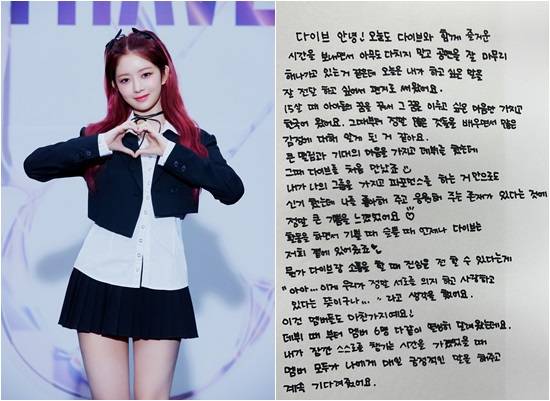 HAVE
다이브 안녕! 오늘도 다이브와 함께 즐거운
시간을 보내면서 아무도 다치지 않고 공연을 잘 마무리
해나가고 있는거 같은데 오늘은 내가 하고 싶은 말을
잘 전달 하고 싶어서 편지로 써왔어요.
15살 때 아이돌의 꿈을 꾸며 그 꿈을 이루고 싶은 마음만 가지고
한국어 왔어요. 그때부터 정말 많은 것들을 배우면서 많은
감정에 대해 알게 된 거 같아요.
큰 떨림과 기대의 마음을 가지고 데뷔를 했는데
그때 다이브를 처음 만났죠
내가 나의 그룹을 가지고 퍼포먼스를 하는 거 만으로도
신기 했는데 나를 좋아해 주고 응원해 주는 존재가 있다는 것에
정말 큰 기쁨을 느꼈었어요
활동을 하면서 기쁠 때 슬플 때 언제나 다이브는
저희 곁에 있어줬죠
뭔가 다이브랑 소통을 할 때 진심을 전 할 수 있다는게
"아아... 이게 우리가 정말 서로를 의지 하고 사랑하고
있다는 뜻이구나... " 라고 생각을 했어요.
이건 멤버들도 마찬가지예요!
데뷔 때 부터 멤버 6명 다같이 열심히 달려왔는데요.
내가 잠깐 스스로를 챙기는 시간을 가졌을 때
멤버 모두가 나에게 매일 긍정적인 말을 해주고
계속 기다려줬어요.